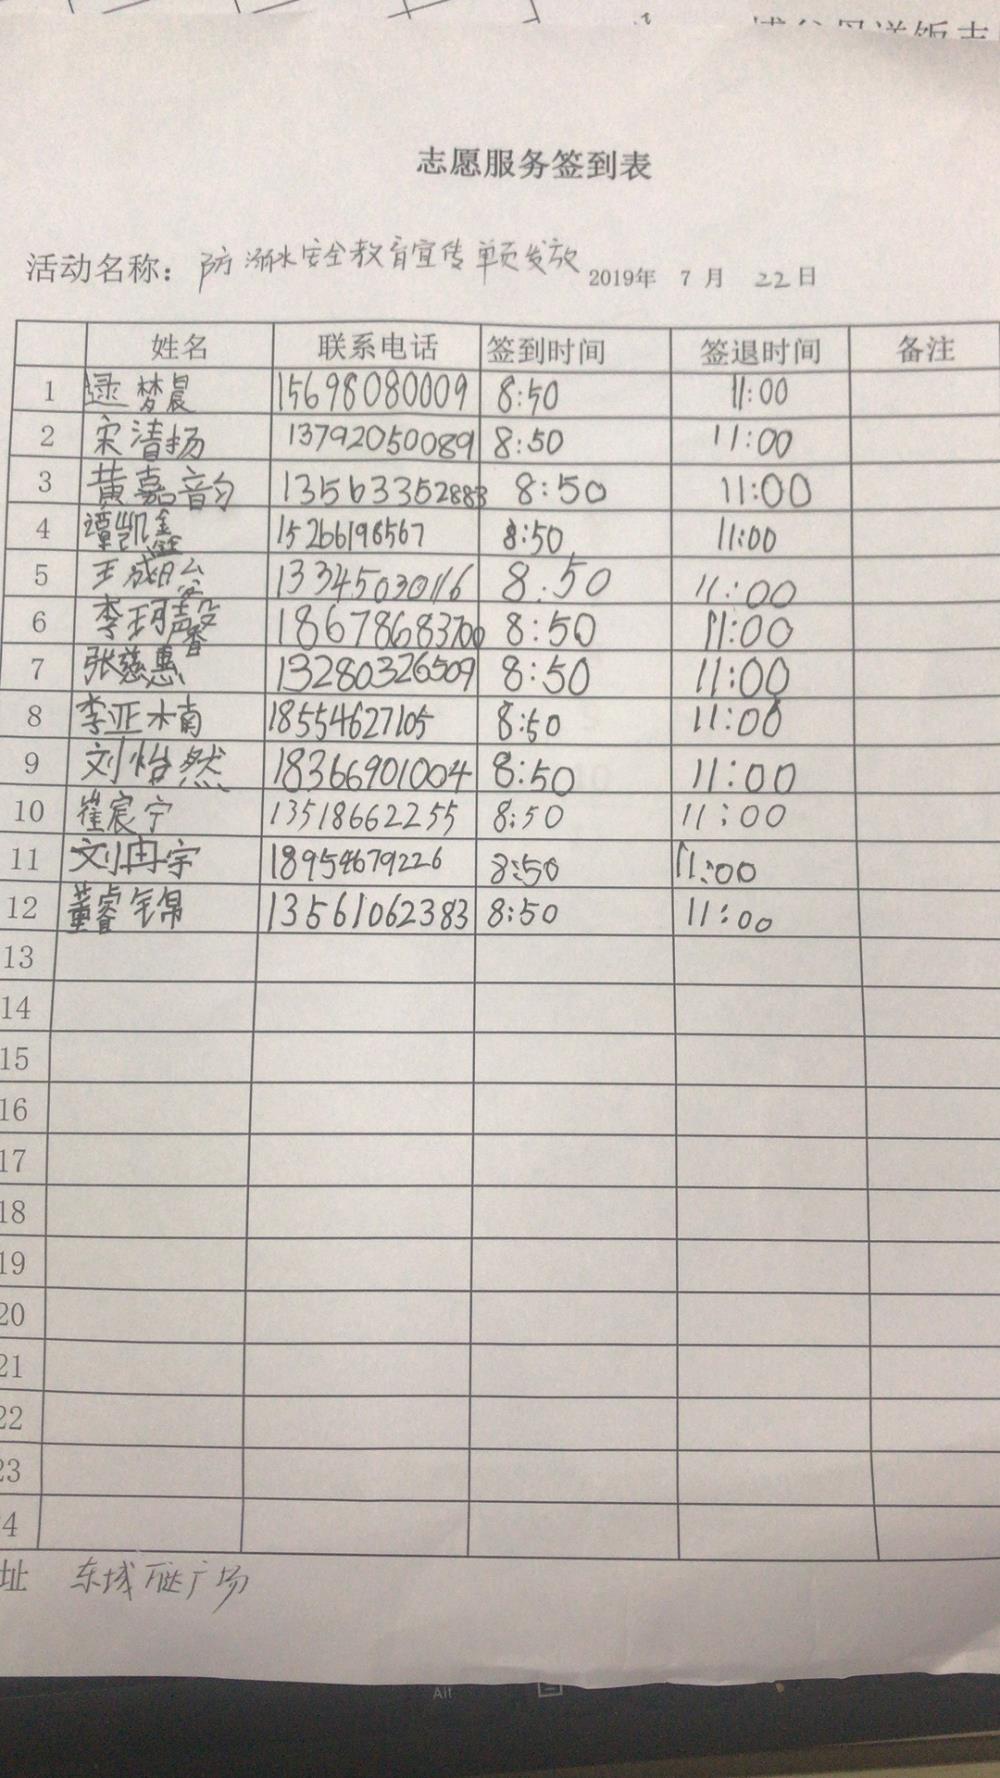 志愿服务签到表
活动名称：防溺水安全教育宣传单页发放 2019年 7 月 22日
姓名 联系电话 签到时间 签退时间 备注
1 逯梦晨 15698080009 8:50 11:00
2 宋清扬 13792050089 8:50 11:00
3 黄嘉韵 13563352883 8:50 11:00
4 谭凯鑫 15266198567 8:50 11:00
5 王成 13345030116 8:50 11:00
6 李珂馨 18678683700 8:50 11:00
7 张慈惠 13280326509 8:50 11:00
8 李亚楠 18554627105 8:50 11:00
9 刘怡然 18366901004 8:50 11:00
10 崔宸宁 13518662255 8:50 11:00
11 刘冉宇 18954679226 8:50 11:00
12 董睿锦 13561062383 8:50 11:00
13
14
15
16
17
18
19
20
21
22
23
4
址 东城 广场
Alt